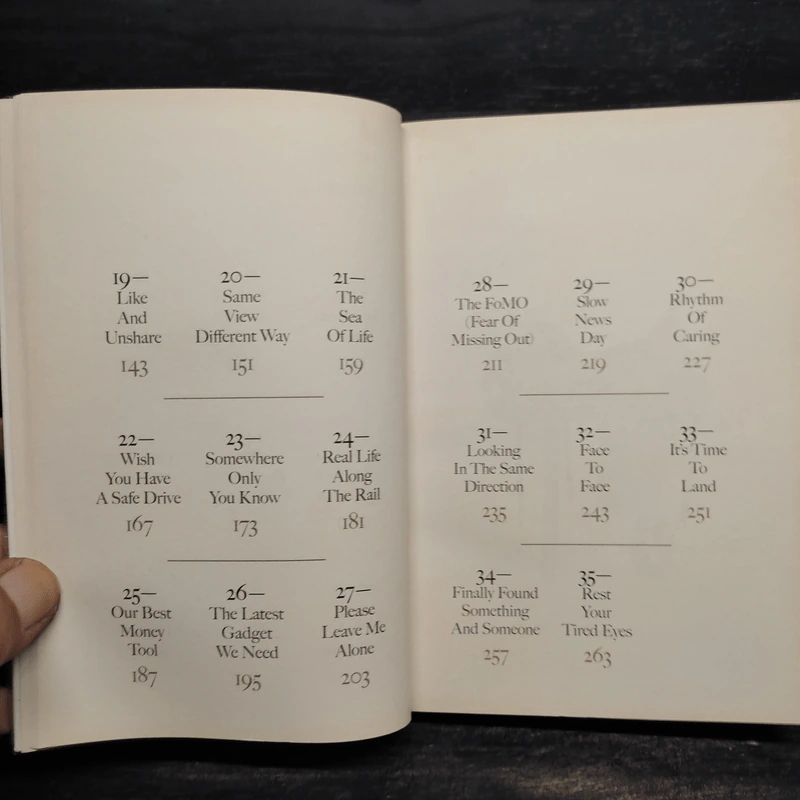 19—
Like
And
Unshare
143
20—
Same
View
Different Way
151
21—
The
Sea
Of Life
159
22—
Wish
You Have
A Safe Drive
167
23—
Somewhere
Only
You Know
173
24—
Real Life
Along
The Rail
181
25—
Our Best
Money
Tool
187
26—
The Latest
Gadget
We Need
195
27—
Please
Leave Me
Alone
203
28—
The FoMO
(Fear Of
Missing Out)
211
29—
Slow
News
Day
219
30—
Rhythm
Of
Caring
227
31—
Looking
In The Same
Direction
235
32—
Face
To
Face
243
33—
It's Time
To
Land
251
34—
Finally Found
Something
And Someone
257
35—
Rest
Your
Tired Eyes
263